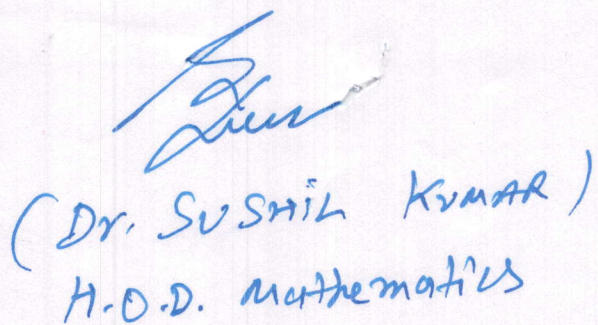 (Dr. SUSHIL KUMAR)
H.O.D. Mathematics